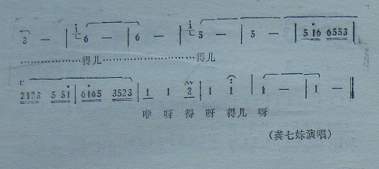 3 — | 6 — | 6 — | 5 — | 5 — | 5 1 6 6553 |
得儿 得儿
2123 5 51 | 6165 3523 | 1 1 2 | 1 1 | 1 — | 1 — ‖
呀 得 呀 得儿 呀
(龚七妹演唱)